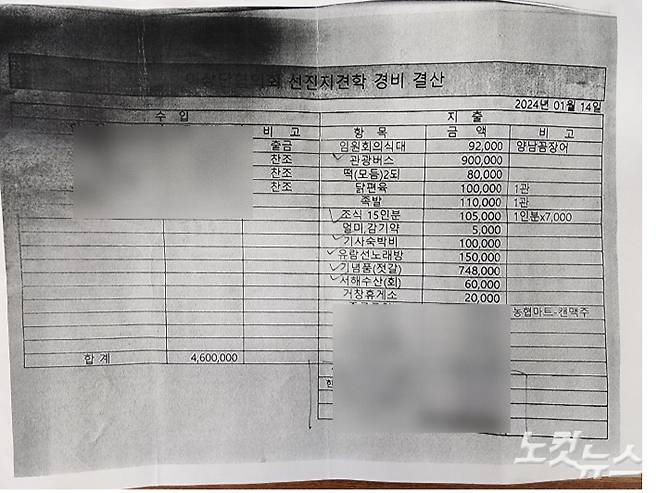 선진지견학 경비 결산
2024년 01월 14일
수 입 지 출
비 고 항 목 금 액 비 고
출금 임원회의식대 92,000 양남꼼장어
찬조 관광버스 900,000
찬조 떡(모듬)2되 80,000
찬조 닭편육 100,000 1관
족발 110,000 1관
조식 15인분 105,000 1인분x7,000
멀미,감기약 5,000
기사숙박비 100,000
유람선노래방 150,000
기념품(젓갈) 748,000
서해수산(회) 60,000
거창휴게소 20,000
농협마트-캔맥주
합 계 4,600,000
노컷뉴스